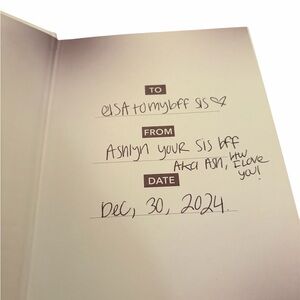 TO
elSA to my bff sis ♡
FROM
Ashlyn your sis bff
AKA Ash, I love
you!
DATE
Dec, 30, 2024